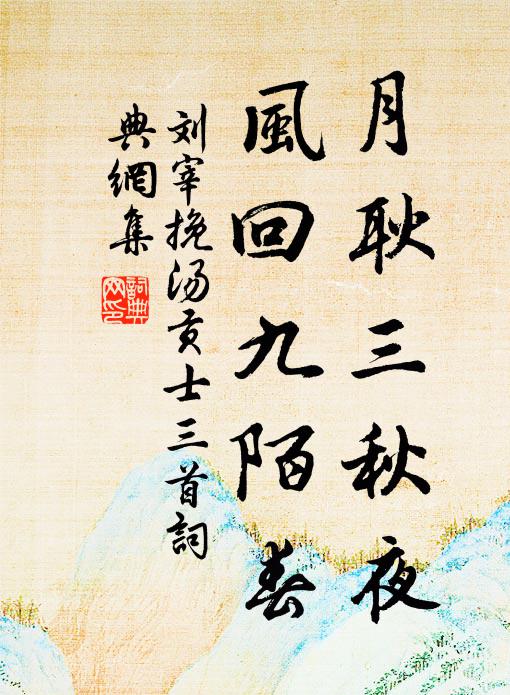 月耿三秋夜
風回九陌春
刘宰挽汤贡士三首詞
典網集
詞典
网印